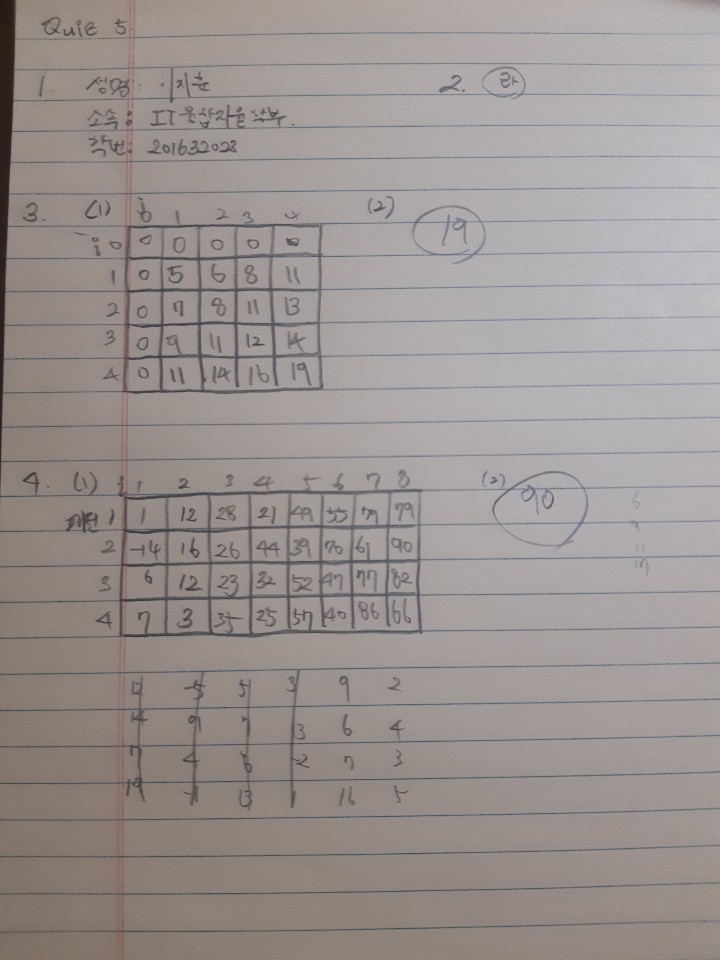 Quiz 5.
1. 성명: 이지훈 2. 라
소속: IT융합자율학부.
학번: 201632023
3. (1) j 0 1 2 3 4 (2) 19
i 0 0 0 0 0 0
1 0 5 6 8 11
2 0 7 8 11 13
3 0 9 11 12 14
4 0 11 14 16 19
4. (1) j 1 2 3 4 5 6 7 8 (2) 90
패턴 1 1 12 28 21 49 55 79 79
2 -14 16 26 44 39 70 61 90
3 6 12 23 32 52 47 77 82
4 7 3 35 25 57 40 86 66
5 9 2
14 9 7 13 6 4
7 4 6 -2 7 3
19 13 1 16 5